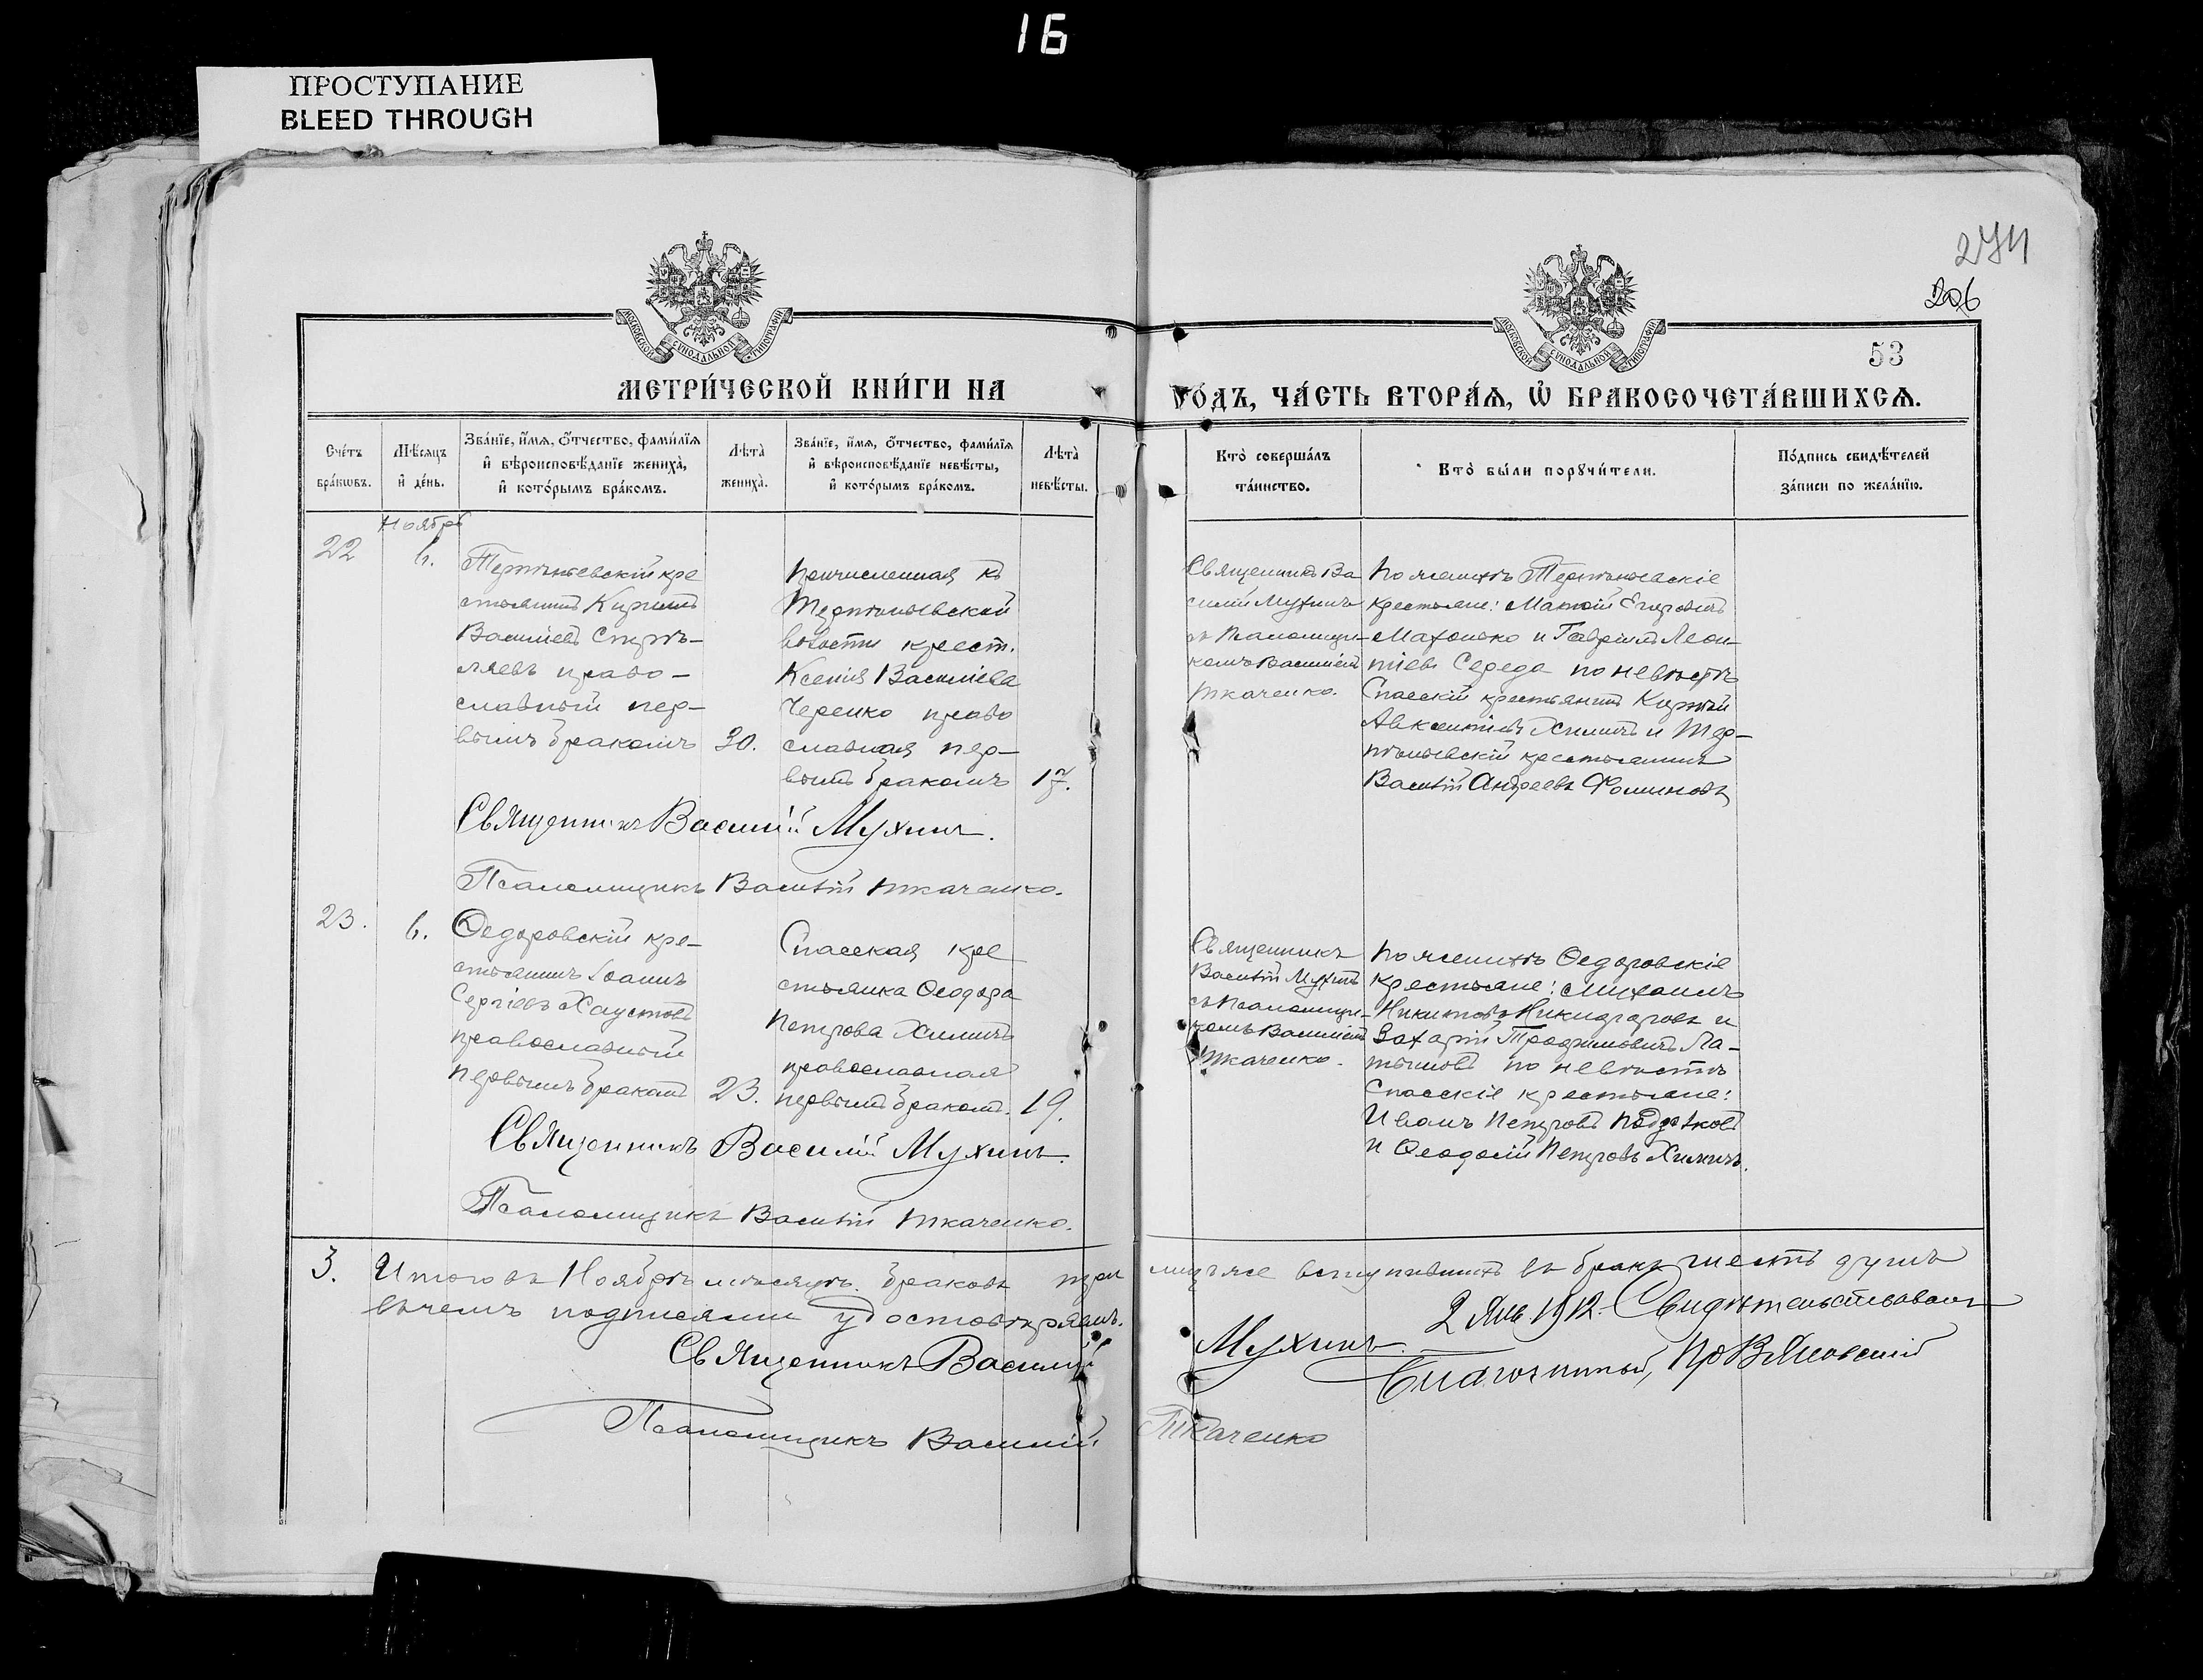 16
ПРОСТУПАНИЕ
BLEED THROUGH
274
206
53
МОСКОВСКОЙ СУНОДАЛЬНОЙ ТИПОГРАФІИ
МОСКОВСКОЙ СУНОДАЛЬНОЙ ТИПОГРАФІИ
МЕТРИ́ЧЕСКОЙ КНИ́ГИ НА ГО́ДЪ, ЧА́СТЬ ВТОРА́Ѧ, Ѡ҆ БРАКОСОЧЕТА́ВШИХСѦ.
Сче́тъ бра́кѡвъ.
Мѣ́сяцъ и҆ де́нь.
Зва́нїе, и҆́мѧ, ѻ҆́тчество, фами́лїѧ
и҆ вѣроисповѣ́данїе жениха̀,
и҆ кото́рымъ бра́комъ.
Лѣ́та̀ жениха̀.
Зва́нїе, и҆́мѧ, ѻ҆́тчество, фами́лїѧ
и҆ вѣроисповѣ́данїе невѣ́сты,
и҆ кото́рымъ бра́комъ.
Лѣ́та̀ невѣ́сты.
Кто̀ соверша́лъ та́инство.
Кто̀ бы́ли порꙋчи́тели.
По́дпись свидѣ́телей
за́писи по жела́нїю.
Ноября
22
6.
кре
стьянинъ
Василіевъ
право-
славный пер-
вымъ бракомъ 30.
Причисленная къ
волости крест.
Ксенія Василіева
Черенко право
славная пер-
вымъ бракомъ 17.
Священникъ Ва
силій Мухинъ
съ Псаломщи-
комъ Василіемъ
Ткаченко.
По женихѣ
крестьяне:
и Гавріилъ Леон-
тіевъ Середа по невѣстѣ
Спасскій крестьянинъ
Химичъ и
крестьянинъ
Василій Андреевъ Фоминовъ
Священникъ Василій Мухинъ.
Псаломщикъ Василій Ткаченко.
23.
6.
Ѳедоровскій кре-
стьянинъ Іоаннъ
Сергіевъ Хаустовъ
православный
первымъ бракомъ 23.
Спасская кре
стьянка Ѳеодора
Петрова Химичъ
православная
первымъ бракомъ. 19.
Священникъ
Василій Мухинъ
съ Псаломщи-
комъ Василіемъ
Ткаченко.
По женихѣ Ѳедоровскіе
крестьяне: Михаилъ
Никитовъ Никифоровъ и
Захарій Трофимовичъ Ла-
тышовъ по невѣстѣ
Спасскіе крестьяне:
Иванъ Петровъ
и Ѳеодосій Петровъ Химичъ.
Священникъ Василій Мухинъ.
Псаломщикъ Василій Ткаченко.
3. Итого въ Ноябрѣ мѣсяцѣ браковъ три лицъ же вступившихъ въ бракъ шесть душъ
въ чемъ подписями удостовѣряемъ.
Священникъ Василій Мухинъ.
2 Янв. 1912. Свидѣтельствовалъ
Благочинный,
Псаломщикъ Василій Ткаченко